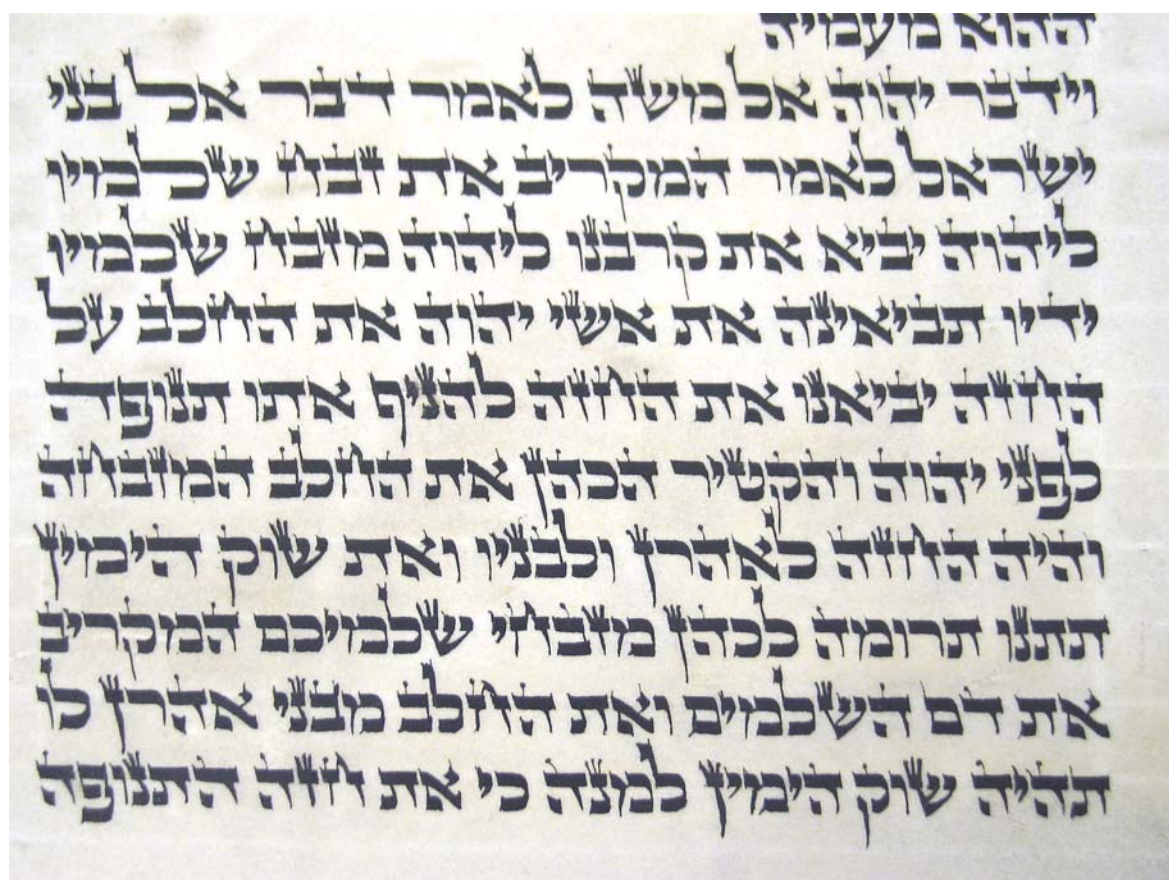 ההוא מעמיה
וידבר יהוה אל משה לאמר דבר אל בני
ישראל לאמר המקריב את זבח שלמיו
ליהוה יביא את קרבנו ליהוה מזבח שלמיו
ידיו תביאינה את אשי יהוה את החלב על
החזה יביאנו את החזה להניף אתו תנופה
לפני יהוה והקטיר הכהן את החלב המזבחה
והיה החזה לאהרן ולבניו ואת שוק הימין
תתנו תרומה לכהן מזבחי שלמיכם המקריב
את דם השלמים ואת החלב מבני אהרן לו
תהיה שוק הימין למנה כי את חזה התנופה